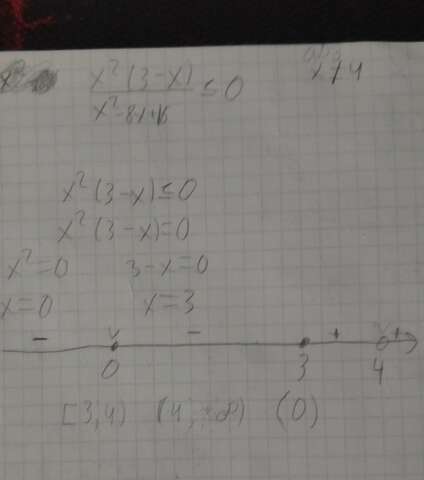 x²(3-x)/x²-8x+16 ≤ 0
x≠4
x²(3-x)≤0
x²(3-x)=0
x²=0 3-x=0
x=0 x=3
- - + +
0 3 4
[3,4) (4,+∞) (0)